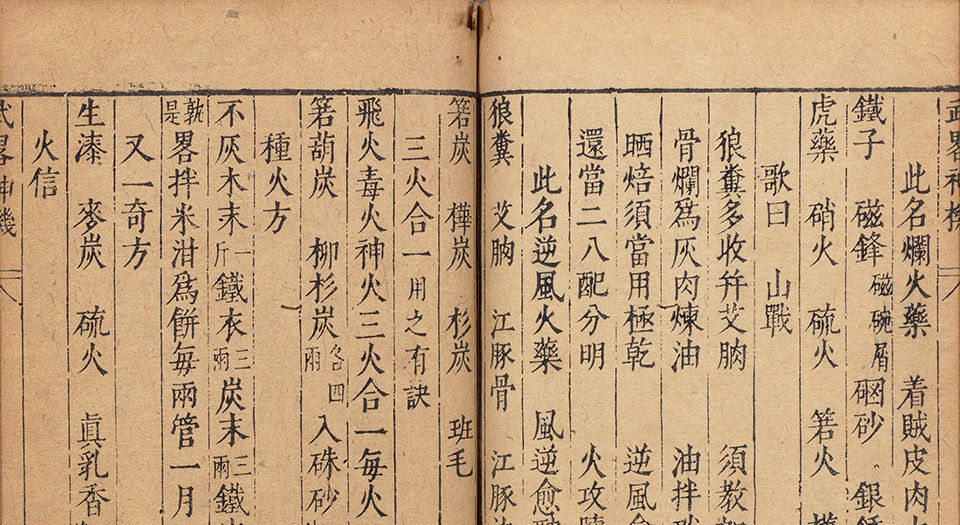 武畧神機
此名爛火藥　着賊皮肉
鐵子　磁鋒　磁碗屑　硇砂　銀
虎藥　硝火　硫火　箬火
歌曰　山戰
狼糞多收幷艾朒　須教
骨爛爲灰肉煉油　油拌
晒焙須當用極乾　逆風
還當二八配分明　火攻
此名逆風火藥　風逆愈
狼糞　艾朒　江豚骨　江豚
箬炭　樺炭　杉炭　班毛
三火合一用之有訣
飛火毒火神火三火合一每火
箬葫炭　柳杉炭各四兩　入硃砂
種火方
不灰木末一斤　鐵衣三兩　炭末三兩　鐵
孰是畧拌米泔爲餅每兩管一月
又一奇方
生漆　麥炭　硫火　眞乳香
火信
武畧神機　八